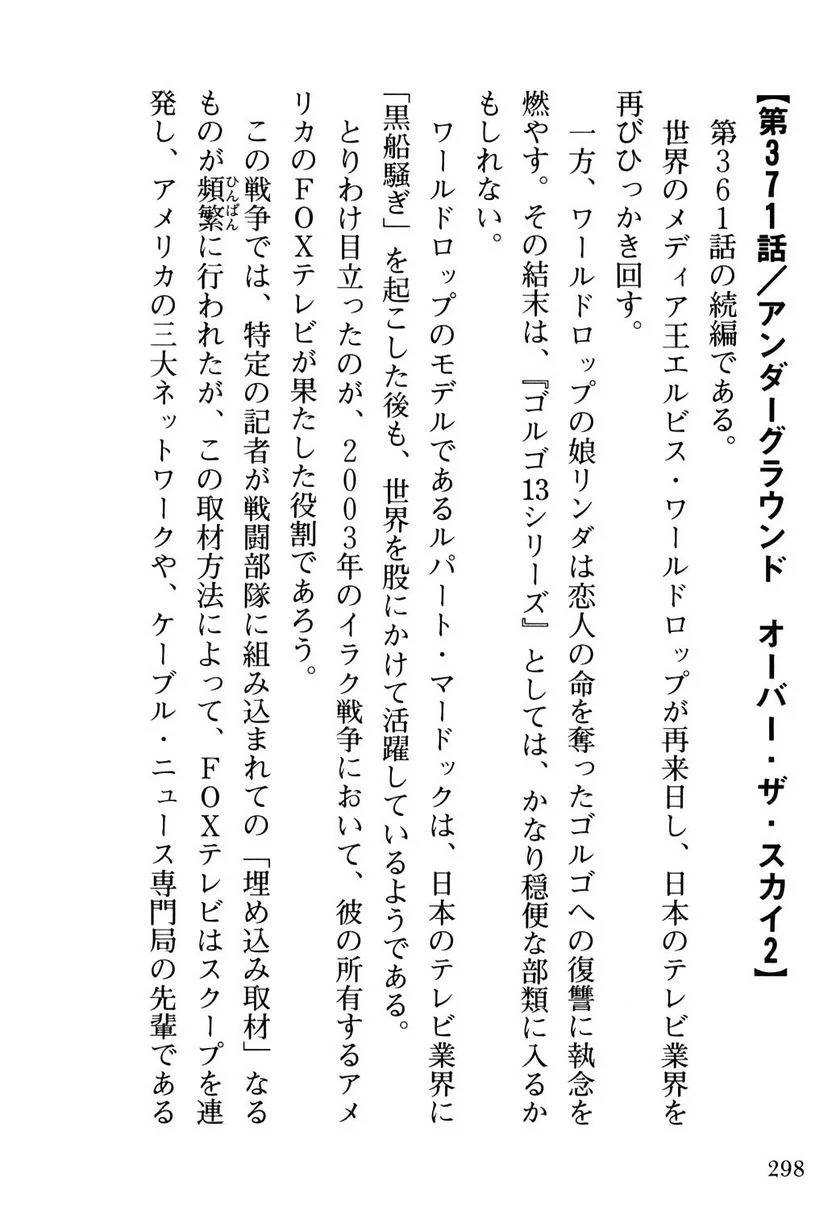 【第371話／アンダーグラウンド　オーバー・ザ・スカイ2】
　第361話の続編である。
　世界のメディア王エルビス・ワールドロップが再来日し、日本のテレビ業界を
再びひっかき回す。
　一方、ワールドロップの娘リンダは恋人の命を奪ったゴルゴへの復讐に執念を
燃やす。その結末は、『ゴルゴ13シリーズ』としては、かなり穏便な部類に入るか
もしれない。
　ワールドロップのモデルであるルパート・マードックは、日本のテレビ業界に
「黒船騒ぎ」を起こした後も、世界を股にかけて活躍しているようである。
　とりわけ目立ったのが、2003年のイラク戦争において、彼の所有するアメ
リカのFOXテレビが果たした役割であろう。
　この戦争では、特定の記者が戦闘部隊に組み込まれての「埋め込み取材」なる
ものが頻繁に行われたが、この取材方法によって、FOXテレビはスクープを連
ひんぱん
発し、アメリカの三大ネットワークや、ケーブル・ニュース専門局の先輩である
298